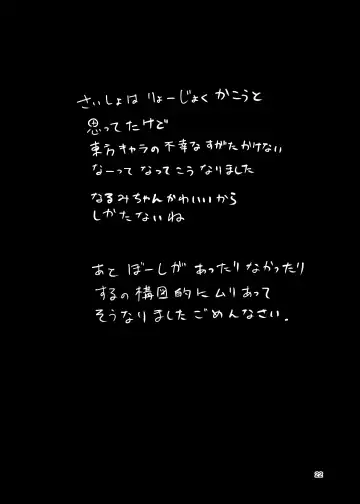 さいしょは りょーじょく かこうと
思ってたけど
東方キャラの不幸なすがたかけない
なーって なってこう なりました
なるみちゃんかわいいから
しかたないね
あと ぼーしが あったりなかったり
するの構図的にムリあって
そうなりましたごめんなさい.
22